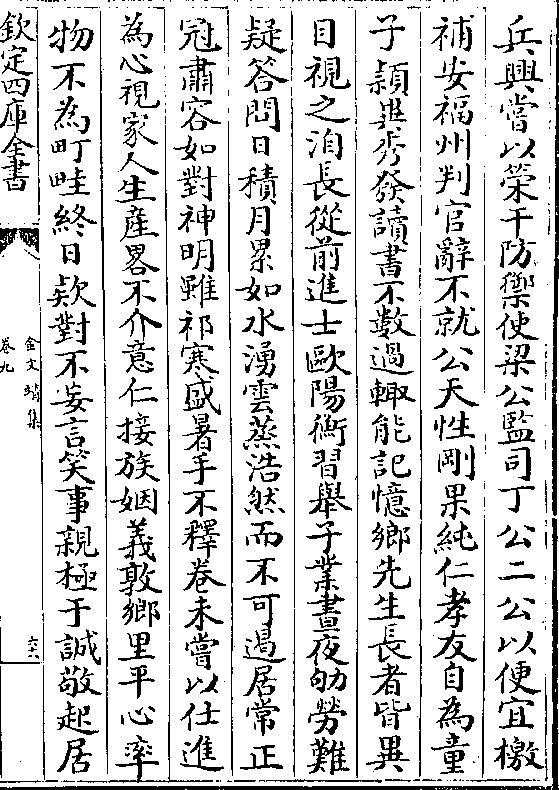 兵興嘗以榮干防禦使梁公監司丁公二公以便宜檄
補安福州判官辭不就公天性剛果純仁孝友自為童
子頴異秀發讀書不數過輙能記憶鄉先生長者皆異
目視之洎長從前進士歐陽衡習舉子業晝夜劬勞難
疑答問日積月累如水湧雲蒸浩然而不可遏居常正
冠肅容如對神明雖祁寒盛暑手不釋卷未嘗以仕進
為心視家人生産畧不介意仁接族姻義敦鄉里平心率
物不為町畦終日欵對不妄言笑事親極于誠敬起居
欽定四庫全書
金文靖集
卷九
六六